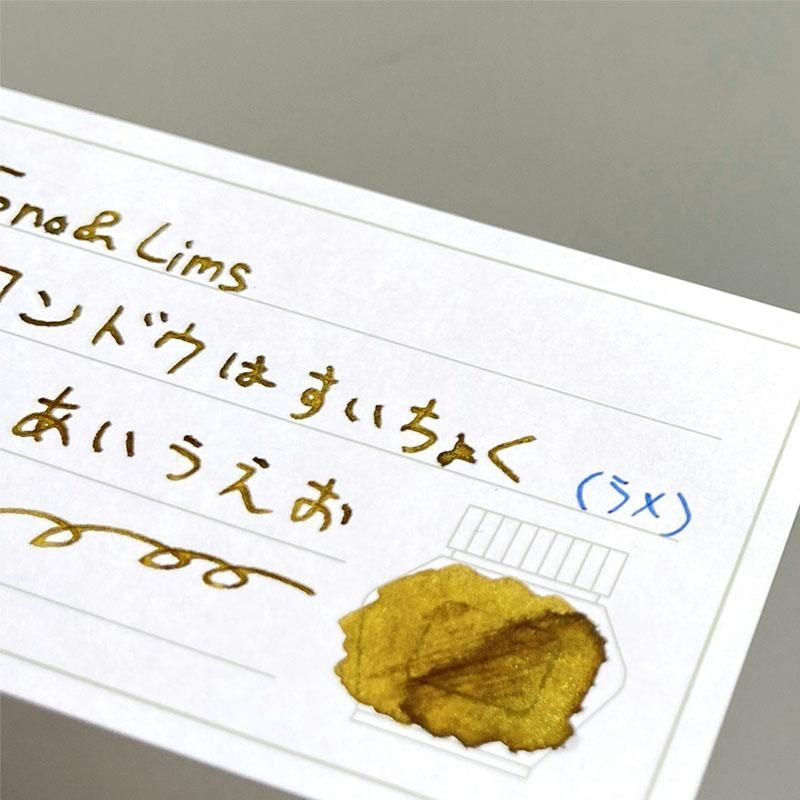 Tono & Lims
ンドウはすいちょく (ラメ)
あいうえお